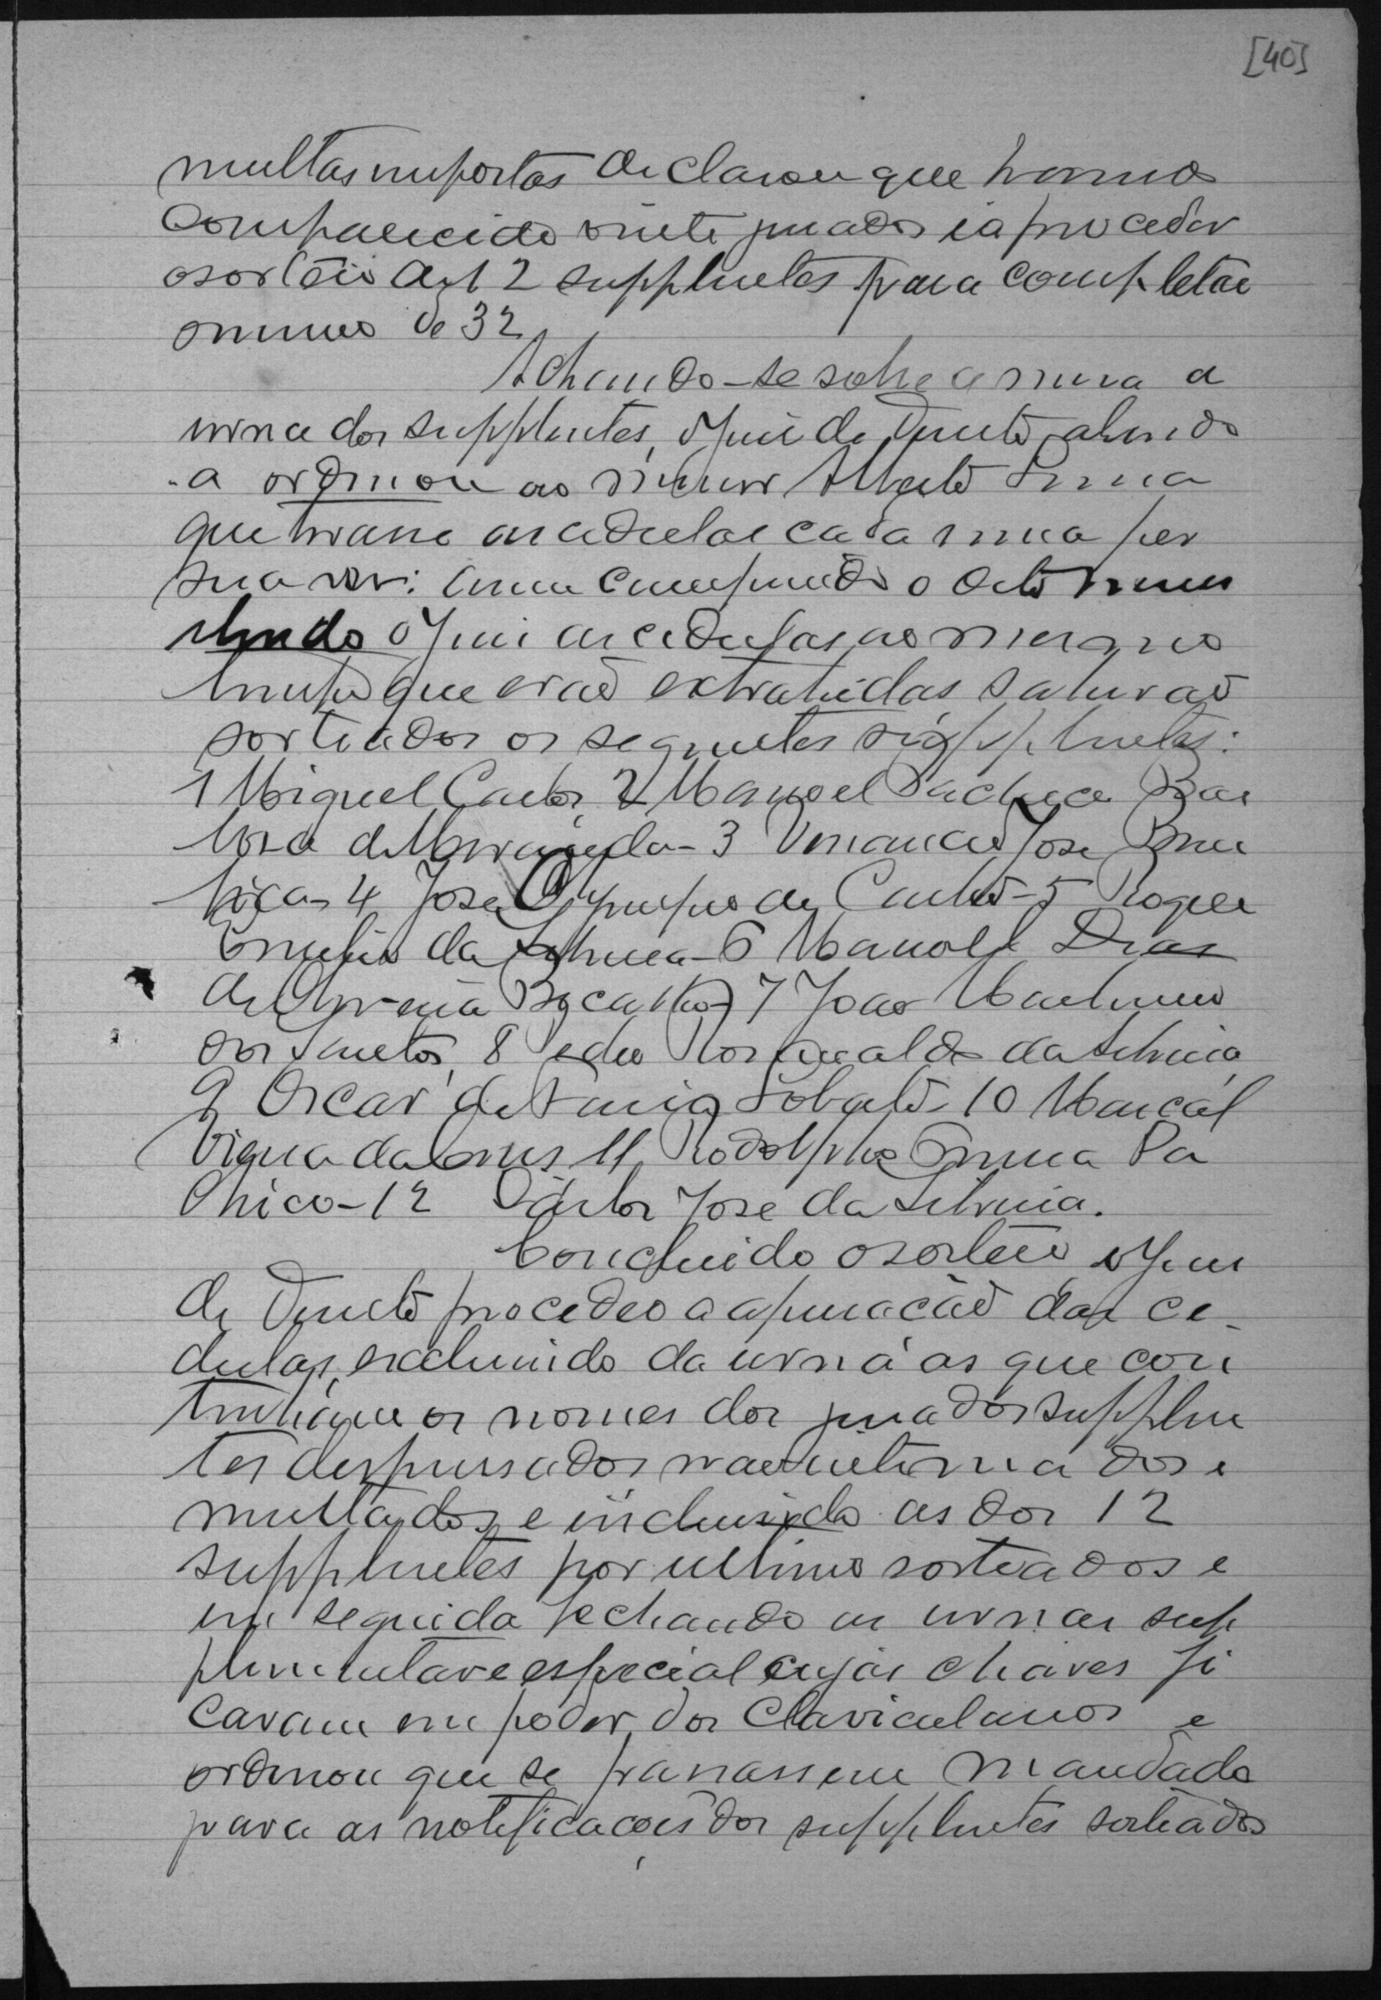 [40]
multas impostas declarou que havendo
comparecido vinte jurados ia proceder
o sorteio de 12 supplentes para completar
o numero de 32
Achando-se sobre a mesa a
urna dos supplentes, o Juiz de Direito abrindo
-a ordenou ao menor Alberto
que tirasse as cedulas cada uma por
sua vez: assim cumprindo o acto
lendo o Juiz as cedulas ao mesmo
tempo que erão extrahidas, sahirão
sorteados os seguintes supplentes:
1 Miguel Carlos, 2 Manoel Pacheco Bar
bosa de Miranda - 3 Venancio José
4 José Olympio de Castro - 5 Roque
Emilio da Silveira - 6 Manoel Dias
de 7 João Martinno
dos Santos, 8 Pedro Rosivaldo da Silveira
9 Oscar de Faria Lobato - 10 Marçal
Vieira da Cruz 11 Rodolpho Pa
checo - 12 Carlos José da Silveira.
Concluido o sorteio o Juiz
de Direito procedeo a apuração das ce-
dulas, excluindo da urna as que con
tinhão os nomes dos jurados supplen
tes dispensados e
multados, e incluindo as dos 12
supplentes por ultimo sorteados e
em seguida fechando as urnas sup
plementar e especial cujas chaves fi
caram em poder dos clavicularios e
ordenou que se passassem mandado
para as notificações dos supplentes sorteados